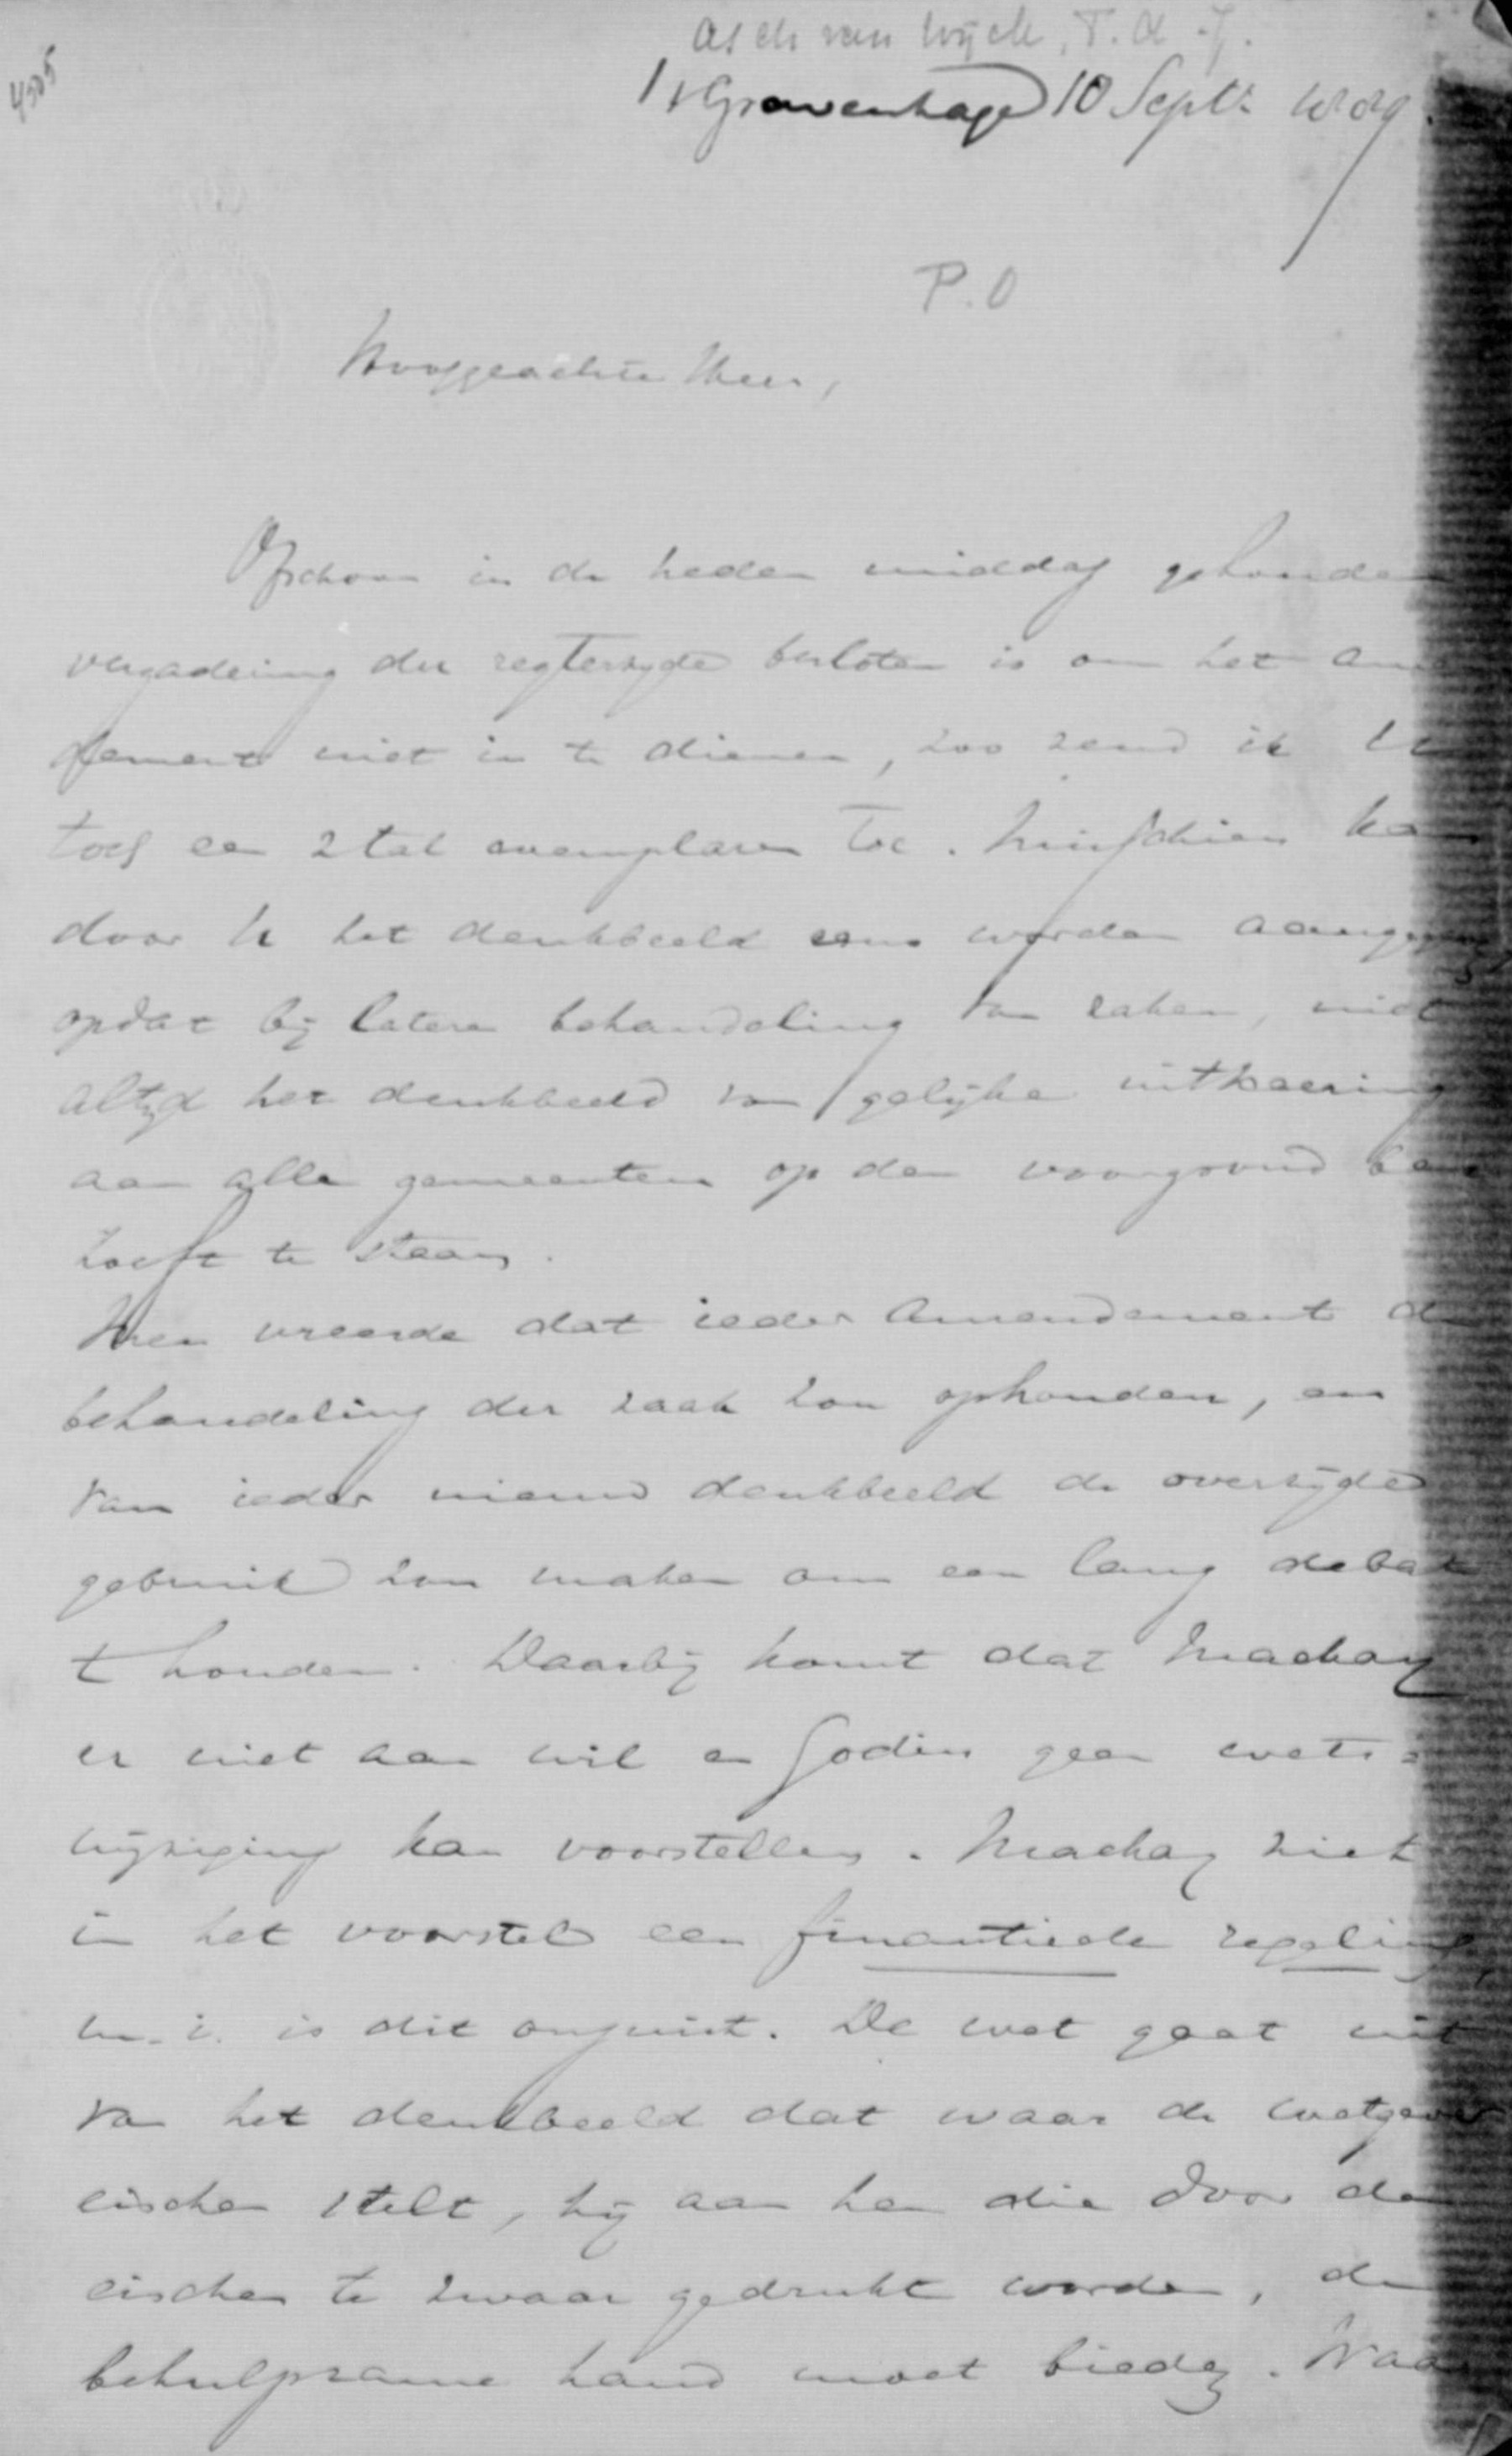 4505
Asch van Wijck, T. A. J.
's Gravenhage 10 Sept.
P.O
Hooggeachte Heer,
Ofschoon in de heden middag gehouden
vergadering der regterzyde besloten is om het
dement niet in te dienen, zoo zend ik U
toch een 2tal exemplaren toe. Misschien kan
door U het denkbeeld eens worden
opdat bij latere behandeling van zaken, niet
altyd het denkbeeld van gelijke uitkeering
aan alle gemeenten op den voorgrond
hoeft te staan.
Men vreesde dat ieder Amendement de
behandeling der zaak zou ophouden, en
van ieder nieuw denkbeeld de overzijde
gebruik zou maken om een lang debat
te houden. Daarbij komt dat Mackay
er niet aan wil en Godin geen wets=
wijziging kan voorstellen. Mackay ziet
in het voorstel een finantieele regeling,
m.i. is dit onjuist. De wet gaat uit
van het denkbeeld dat waar de wetgever
eischen stelt, hij aan hen die door de
eischen te zwaar gedrukt worden, de
behulpzame hand moet bieden. Waar